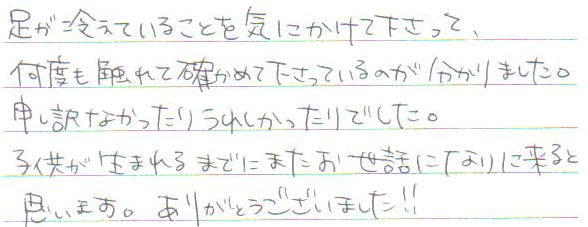 足が冷えていることを気にかけて下さって、
何度も触れて確かめて下さっているのが分かりました。
申し訳なかったりうれしかったりでした。
子供が生まれるまでにまたお世話になりに来ると
思います。ありがとうございました!!